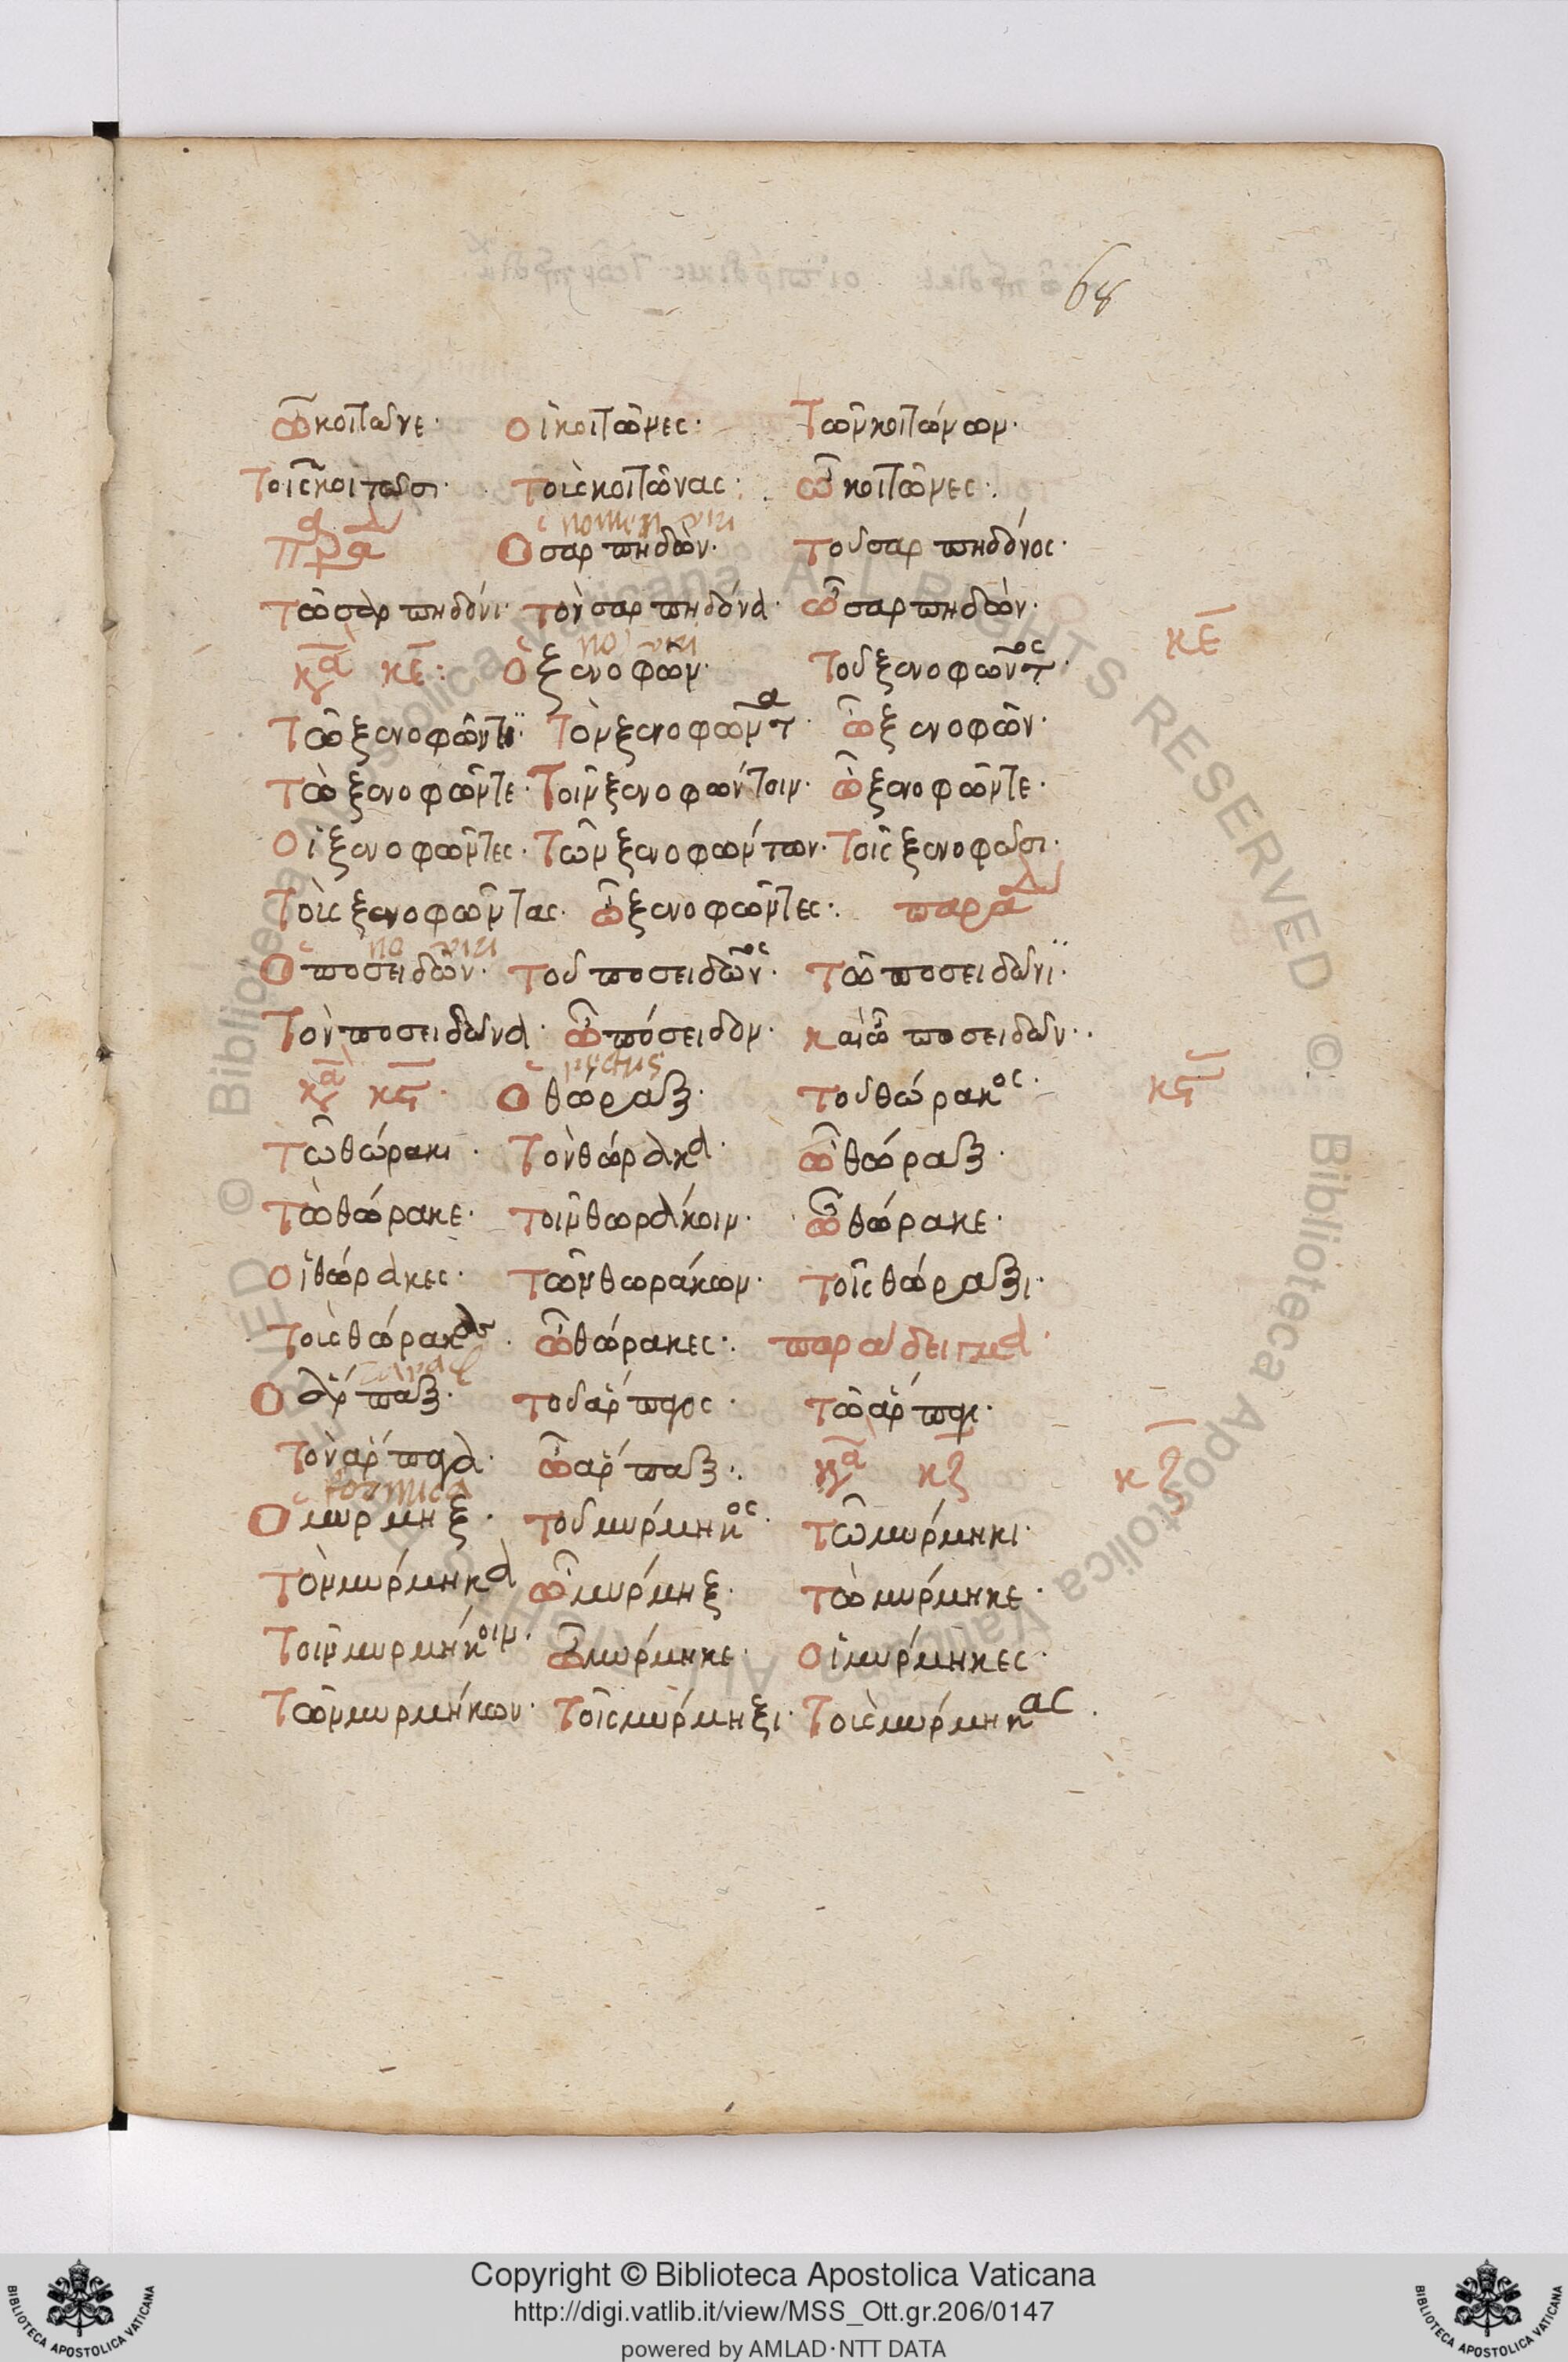 68
ὦ κοιτῶνε· οἱ κοιτῶνες· τῶν κοιτώνων·
τοῖς κοιτῶσι· τοὶς κοιτῶνας· ὦ κοιτῶνες:
nomen viri
ὁ σαρπηδὼν· τοῦ σαρπηδόνος·
τῶ σαρπηδόνι· τὸν σαρπηδόνα· ὦ σαρπηδὼν· κε
no viri
κα κε: ὁ ξενοφῶν· τοῦ ξενοφῶντος·
τῶ ξενοφῶντι· τὸν ξενοφῶντα· ὦ ξενοφῶν·
τὼ ξενοφῶντε· τοῖν ξενοφώντοιν· ὦ ξενοφῶντε·
οἱ ξενοφῶντες· τῶν ξενοφώντων· τοῖς ξενοφῶσι·
τοὶς ξενοφῶντας· ὦ ξενοφῶντες: παρα
no viri
ὁ ποσειδῶν· τοῦ ποσειδῶνος· τῶ ποσειδῶνϊ·
τὸν ποσειδῶνα· ὦ πόσειδον· καὶ ὦ ποσειδῶν··
pectus
κα κϛ· ὁ θώραξ· τοῦ θώρακος· κϛ
τῶ θώρακι· τὸν θώρακα· ὦ θώραξ·
τὼ θώρακε· τοῖν θωράκοιν· ὦ θώρακε·
οἱ θώρακες· τῶν θωράκων· τοῖς θώραξι·
τοὶς θώρακας· ὦ θώρακες: παράδειγμα·
ὁ ἅρπαξ· τοῦ ἅρπαγος· τῶ ἅρπαγι·
τὸν ἅρπαγα· ὦ ἅρπαξ: κα κζ κζ
formica
ὁ μύρμηξ· τοῦ μύρμηκος· τῶ μύρμηκι·
τὸν μύρμηκα ὦ μύρμηξ· τὼ μύρμηκε·
τοῖν μυρμήκοιν· ὦ μύρμηκε· οἱ μύρμηκες·
τῶν μυρμήκων· τοῖς μύρμηξι· τοὶς μύρμηκας·
Copyright © Biblioteca Apostolica Vaticana
http://digi.vatlib.it/view/MSS_Ott.gr.206/0147
powered by AMLAD·NTT DATA